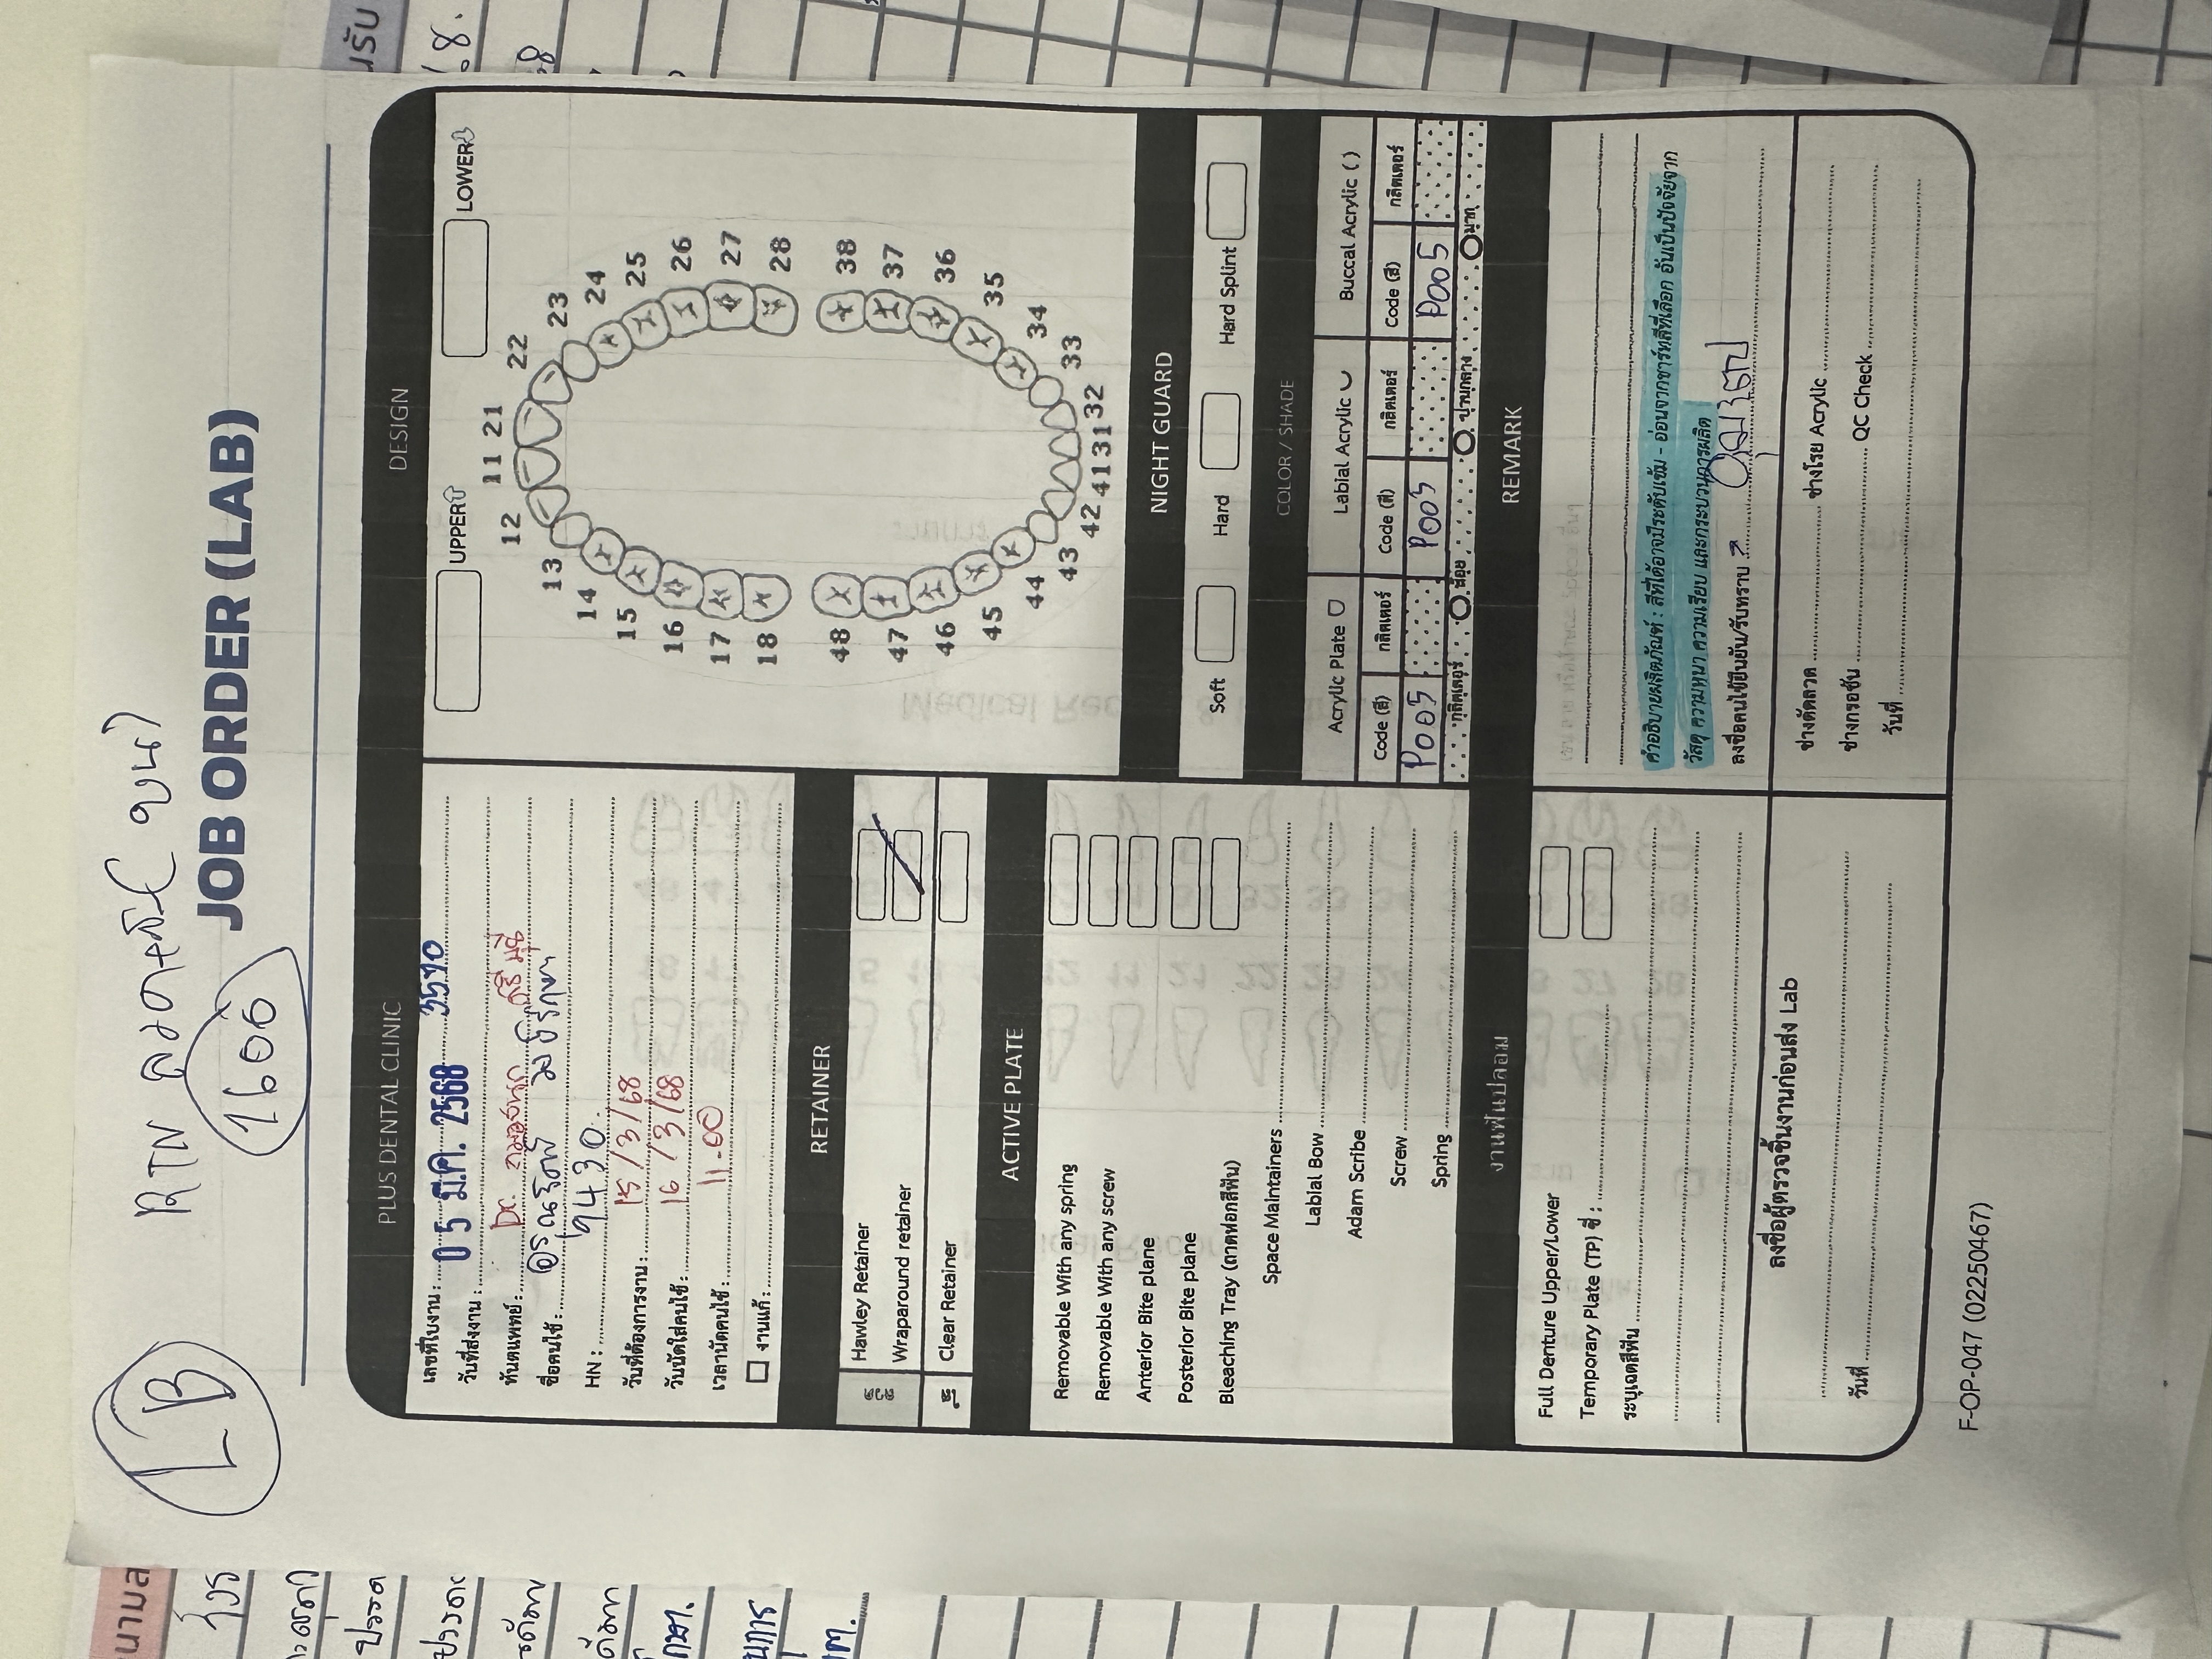 LB
RTN ลวด ( บน )
1600
JOB ORDER (LAB)
PLUS DENTAL CLINIC
เลขที่ใบงาน : 3570
วันที่ส่งงาน : 05 มี.ค. 2568
ทันตแพทย์ : Dr.
ชื่อคนไข้ :
HN : 9430
วันที่ต้องการงาน : 15/3/68
วันนัดใส่คนไข้ : 16/3/68
เวลานัดคนไข้ : 11.00
งานแก้ :
RETAINER
ลวด
Hawley Retainer
Wraparound retainer
ใส
Clear Retainer
ACTIVE PLATE
Removable With any spring
Removable With any screw
Anterior Bite plane
Posterior Bite plane
Bleaching Tray (ถาดฟอกสีฟัน)
Space Maintainers
Labial Bow
Adam Scribe
Screw
Spring
งานฟันปลอม
Full Denture Upper/Lower
Temporary Plate (TP) ซี่ :
ระบุเฉดสีฟัน
ลงชื่อผู้ตรวจชิ้นงานก่อนส่ง Lab
วันที่
DESIGN
UPPER LOWER
11 21
12 22
13 23
14 24
15 25
16 26
17 27
18 28
48 38
47 37
46 36
45 35
44 34
43 33
42 41 31 32
NIGHT GUARD
Soft Hard Hard Splint
COLOR / SHADE
Acrylic Plate Labial Acrylic Buccal Acrylic ( )
Code (สี) กลิตเตอร์ Code (สี) กลิตเตอร์ Code (สี) กลิตเตอร์
P005 P005 P005
กลิตเตอร์ น้อย ปานกลาง มาก
REMARK
เช่น ลาย หรือลักษณะ Special อื่นๆ
คำอธิบายผลิตภัณฑ์ : สีที่ได้อาจมีระดับเข้ม - อ่อนจากชาร์ทสีที่เลือก อันเป็นปัจจัยจาก
วัสดุ ความหนา ความเรียบ และกระบวนการผลิต
ลงชื่อคนไข้ยืนยัน/รับทราบ
ช่างดัดลวด ช่างโรย Acrylic
ช่างกรอขัน QC Check
วันที่
F-OP-047 (02250467)